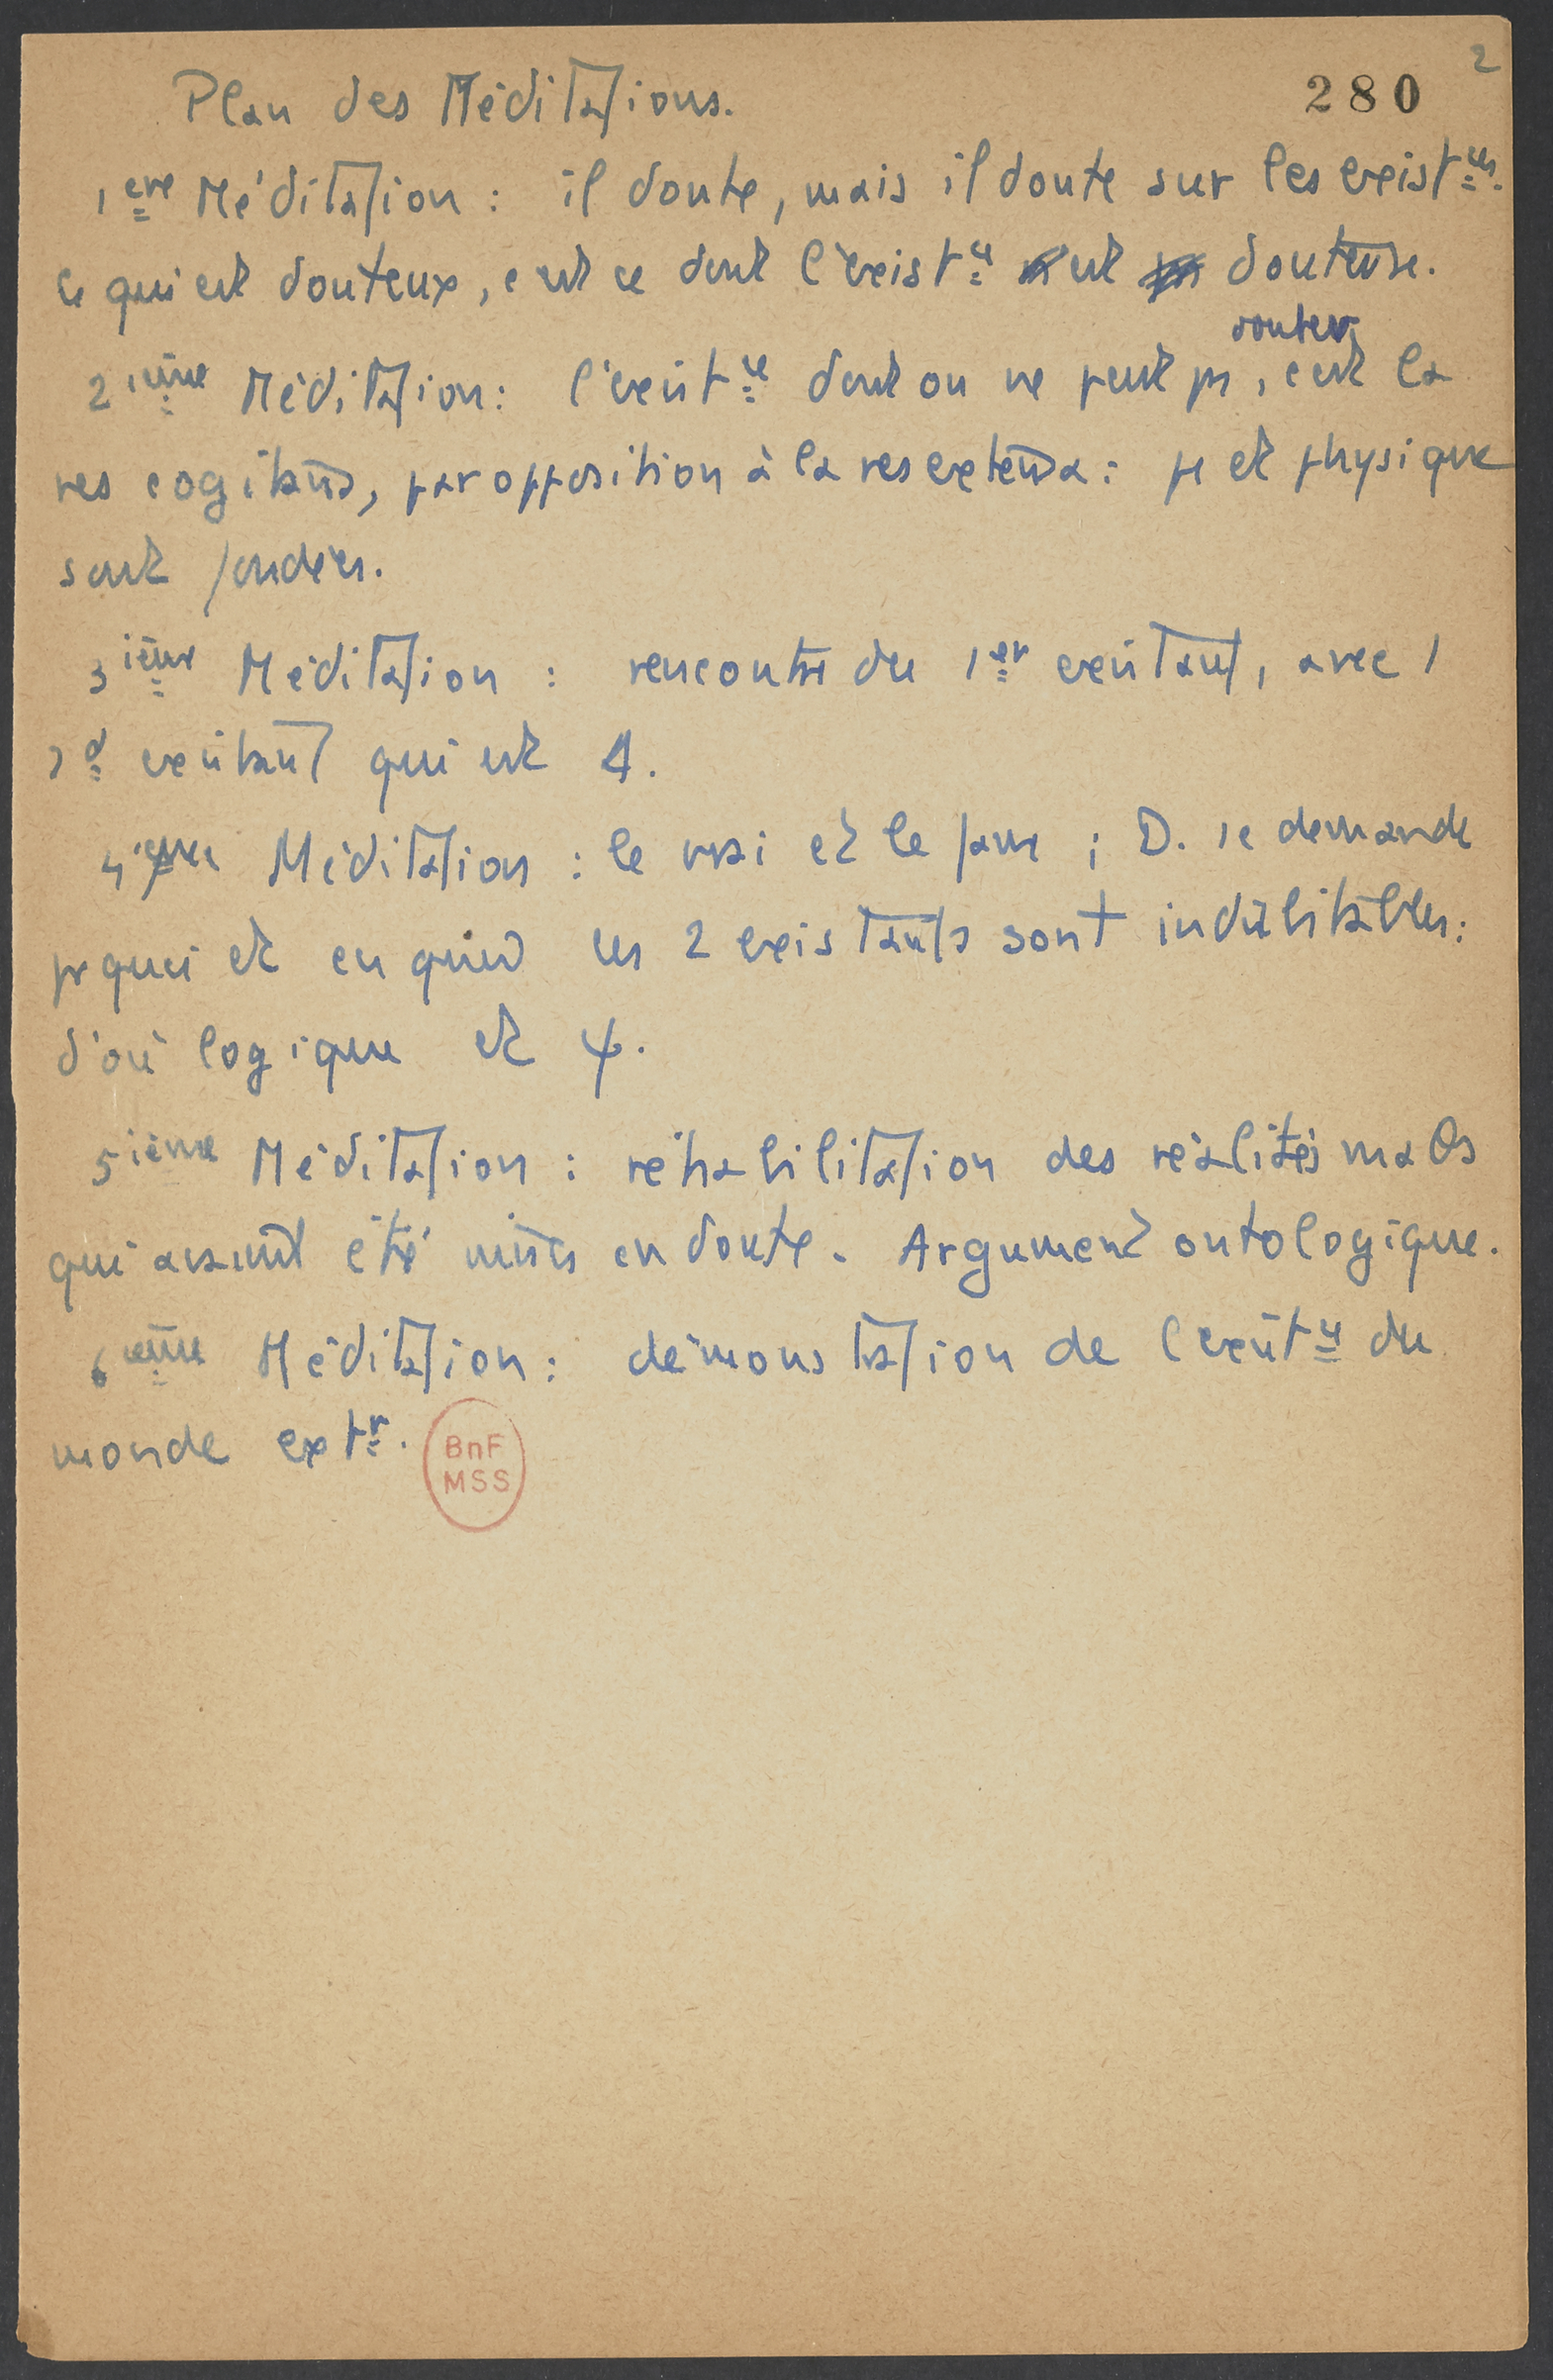 2
280
Plan des Méditations.
1ere Méditation : il doute, mais il doute sur les existces.
Ce qui est douteux, c'est ce dont l'existce est douteuse.
douter
2ième Méditation : l'existce dont on ne peut pas, c'est la
res cogitans, par opposition à la res extensa : et physique
sont fondées.
3ième Méditation : rencontre du 1er existant, avec 1
2d existant qui est
4ième Méditation : le vrai et le faux ; D. se demande
pquoi et en quoi ces 2 existants sont indubitables :
d'où logique et ψ.
5ième Méditation : réhabilitation des réalités
qui avaient été mises en doute. Argument ontologique.
6ième Méditation : démonstration de l'existce du
monde extr.
BnF
MSS